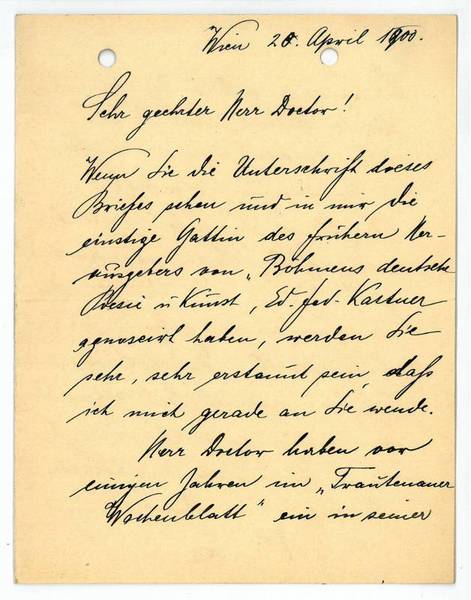 Wien 28. April 1900.
Sehr geehrter Herr Doctor!
Wenn Sie die Unterschrift dieses
Briefes sehen und in mir die
einstige Gattin des frühern Her-
ausgebers von „Böhmens deutsche
Poesie u Kunst, Ed. fed. Kastner
agnoscirt haben, werden Sie
sehr, sehr erstaunt sein, daß
ich mich gerade an Sie wende.
Herr Doctor haben vor
einigen Jahren im „Trautenauer
Wochenblatt" ein in seiner